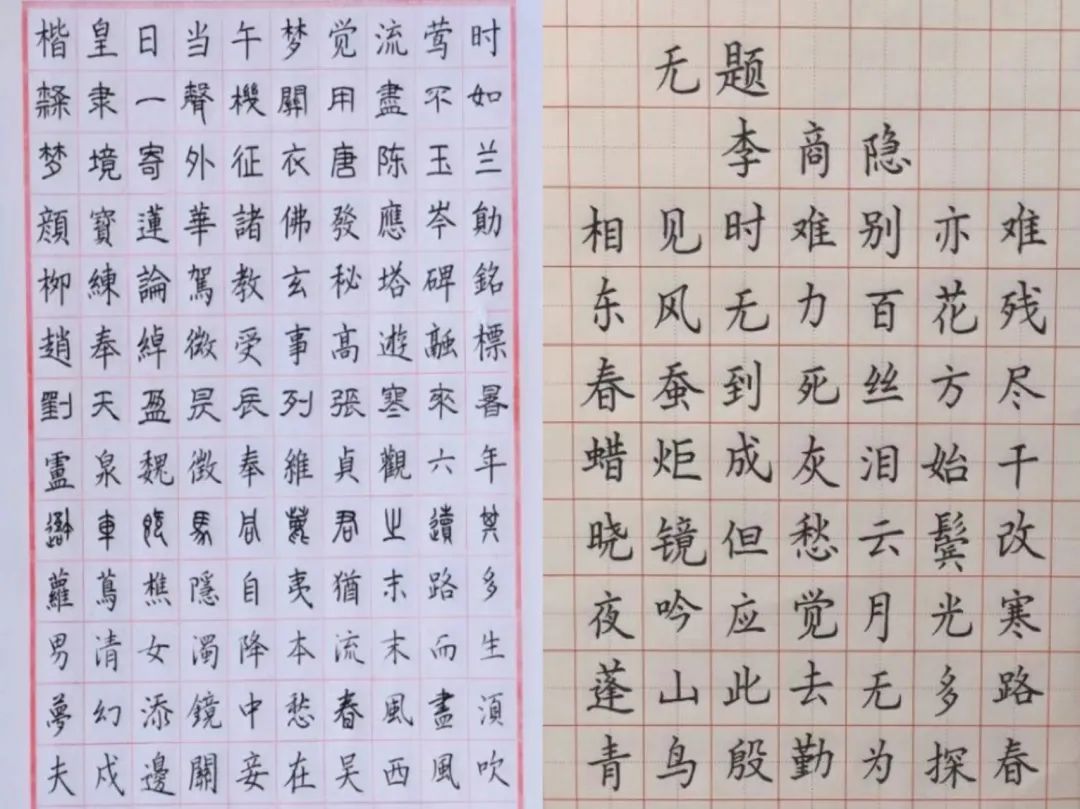 楷皇日当午梦觉流莺时
隸隶一聲機關用盡不如
梦境寄外征衣唐陈玉兰
顔寶蓮華諸佛發應岑勛
柳練論駕教玄秘塔碑銘
趙奉綽微受事高遊融標
劉天盈昃辰列張寒來暑
靈泉魏徵奉維貞觀六年
車馬君之讀其
蘿蔦樵隱自夷猶末路多
男清女濁降本流末而生
夢幻添鏡中愁春風盡須
夫戍邊關妾在吴西風吹
无题
李商隐
相见时难别亦难
东风无力百花残
春蚕到死丝方尽
蜡炬成灰泪始干
晓镜但愁云鬓改
夜吟应觉月光寒
蓬山此去无多路
青鸟殷勤为探春